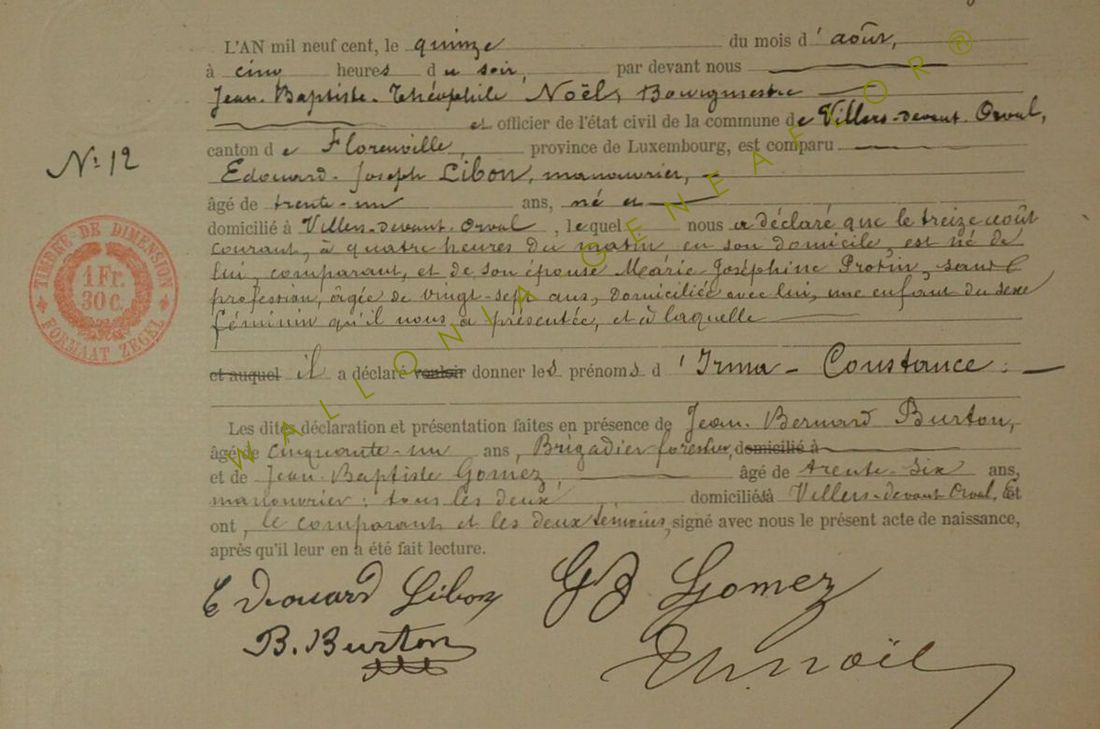 L'AN mil neuf cent, le quinze du mois d'août,
à cinq heures du soir, par devant nous
Jean-Baptiste-Théophile Noël, Bourgmestre
et officier de l'état civil de la commune de Villers-devant-Orval,
N° 12
canton de Florenville, province de Luxembourg, est comparu
Edouard-Joseph Libon, manouvrier,
âgé de trente-un ans, né et
domicilié à Villers-devant-Orval, lequel nous a déclaré que le treize août
courant, à quatre heures du matin en son domicile, est né de
lui, comparant, et de son épouse Marie Joséphine Protin, sans
profession, âgée de vingt-sept ans, domiciliée avec lui, une enfant du sexe
féminin qu'il nous a présentée, et à laquelle
et auquel il a déclaré vouloir donner les prénoms d'Irma-Constance.
Les dites déclaration et présentation faites en présence de Jean-Bernard Burton,
âgé de cinquante-un ans, Brigadier forestier, domicilié à
et de Jean-Baptiste Gomez, âgé de trente-six ans,
manouvrier; tous les deux, domiciliés à Villers-devant-Orval, Et
ont, le comparant et les deux témoins, signé avec nous le présent acte de naissance,
après qu'il leur en a été fait lecture.
TIMBRE DE DIMENSION
1 Fr.
30 C.
FORMAAT ZEGEL
Edouard Libon
GB Gomez
B. Burton
Th noël
WALLONIA GENEAFOR®